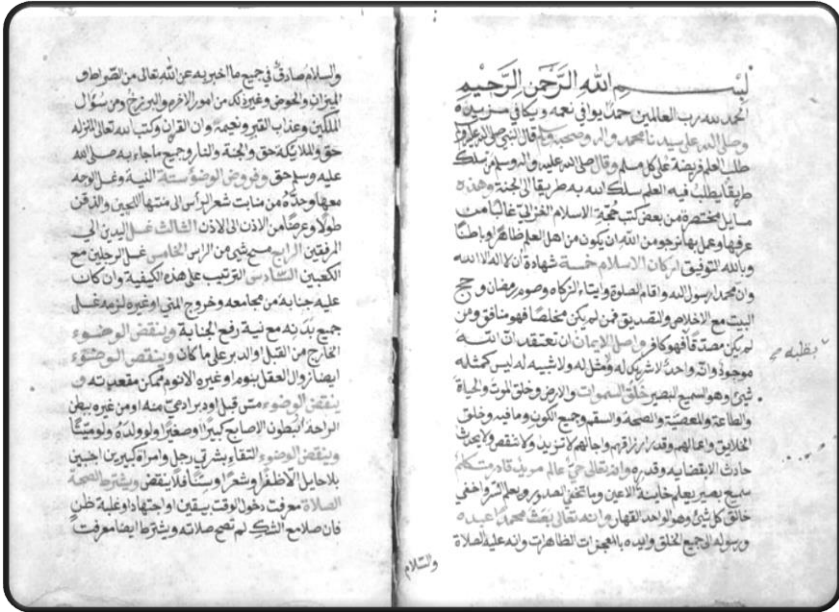 بسم الله الرحمن الرحيم
الحمد لله رب العالمين حمدا يوافي نعمه ويكافي مزيده
وصلى الله على سيدنا محمد واله وصحبه وسلم قال النبي صلى الله عليه وسلم
طلب العلم فريضة على كل مسلم وقال صلى الله عليه واله وسلم من سلك
طريقا يطلب فيه العلم سلك الله به طريقا الى الجنة وهذه
مسايل مختصرة من بعض كتب حجة الاسلام الغزالي غالبا من
عرفها وعمل بها نرجو من الله ان يكون من اهل العلم ظاهرا وباطنا
وبالله التوفيق اركان الاسلام خمسة شهادة ان لا اله الا الله
وان محمدا رسول الله واقام الصلوة وايتاء الزكاه وصوم رمضان وحج
البيت مع الاخلاص والتصديق فمن لم يكن مخلصا فهو منافق ومن
لم يكن مصدقا فهو كافر واصل الايمان ان تعتقد ان الله
موجود وانه واحد لا شريك له ولا مثل له ولا شبيه له ليس كمثله
شيئ وهو السميع البصير خلق السموات والارض وخلق الموت والحياة
والطاعة والمعصية والصحة والسقم وجميع الكون وما فيه وخلق
الخلايق واعمالهم وقدر ارزاقهم واجالهم لا تزيد ولا تنقص ولا يحدث
حادث الا بقضايه وقدره وانه تعالى حي عالم مريد قادر متكلم
سميع بصير يعلم خاينة الاعين وما تخفي الصدور ويعلم السر واخفى
خالق كل شيئ وهو الواحد القهار وانه تعالى بعث محمدا عبده
ورسوله الى جميع الخلق وايده بالمعجزات الظاهرات وانه عليه الصلاة
والسلام
بقلبه
والسلام صادق في جميع ما اخبر به عن الله تعالى من الصراط و
الميزان والحوض وغير ذلك من امور الاخرة والبرزخ ومن سؤال
الملكين وعذاب القبر ونعيمه وان القران وكتب الله تعالى المنزله
حق والملايكة حق والجنة والنار وجميع ما جاء به صلى الله
عليه وسلم حق وفروض الوضؤ ستة النية وغسل الوجه
معها وحده من منابت شعر الراس الى منتها اللحيين والذقن
طولا وعرضا من الاذن الى الاذن الثالث غسل اليدين الى
المرفقين الرابع مسح شيئ من الراس الخامس غسل الرجلين مع
الكعبين السادس الترتيب على هذه الكيفية وان كان
عليه جنابة من مجامعه وخروج المني او غيره لزمه غسل
جميع بدنه مع نية رفع الجنابة وينقض الوضوء
الخارج من القبل والدبر على ما كان وينقض الوضوء
ايضا زوال العقل بنوم او غيره الا نوم ممكن مقعدته و
ينقض الوضوء مس قبل او دبر ادمي منه او من غيره ببطن
الراحة او بطون الاصابع كبيرا او صغيرا ولو ولده ولو ميتا
وينقض الوضوء التقاء بشرتي رجل وامراة كبيرين اجنبيين
بلا حايل الا ظفرا وشعرا وسنا فلا ينقض ويشترط لصحة
الصلاة معرفت دخول الوقت بيقين او اجتهاد او غلبة ظن
فان صلا مع الشك لم تصح صلاته ويشترط ايضا معرفت